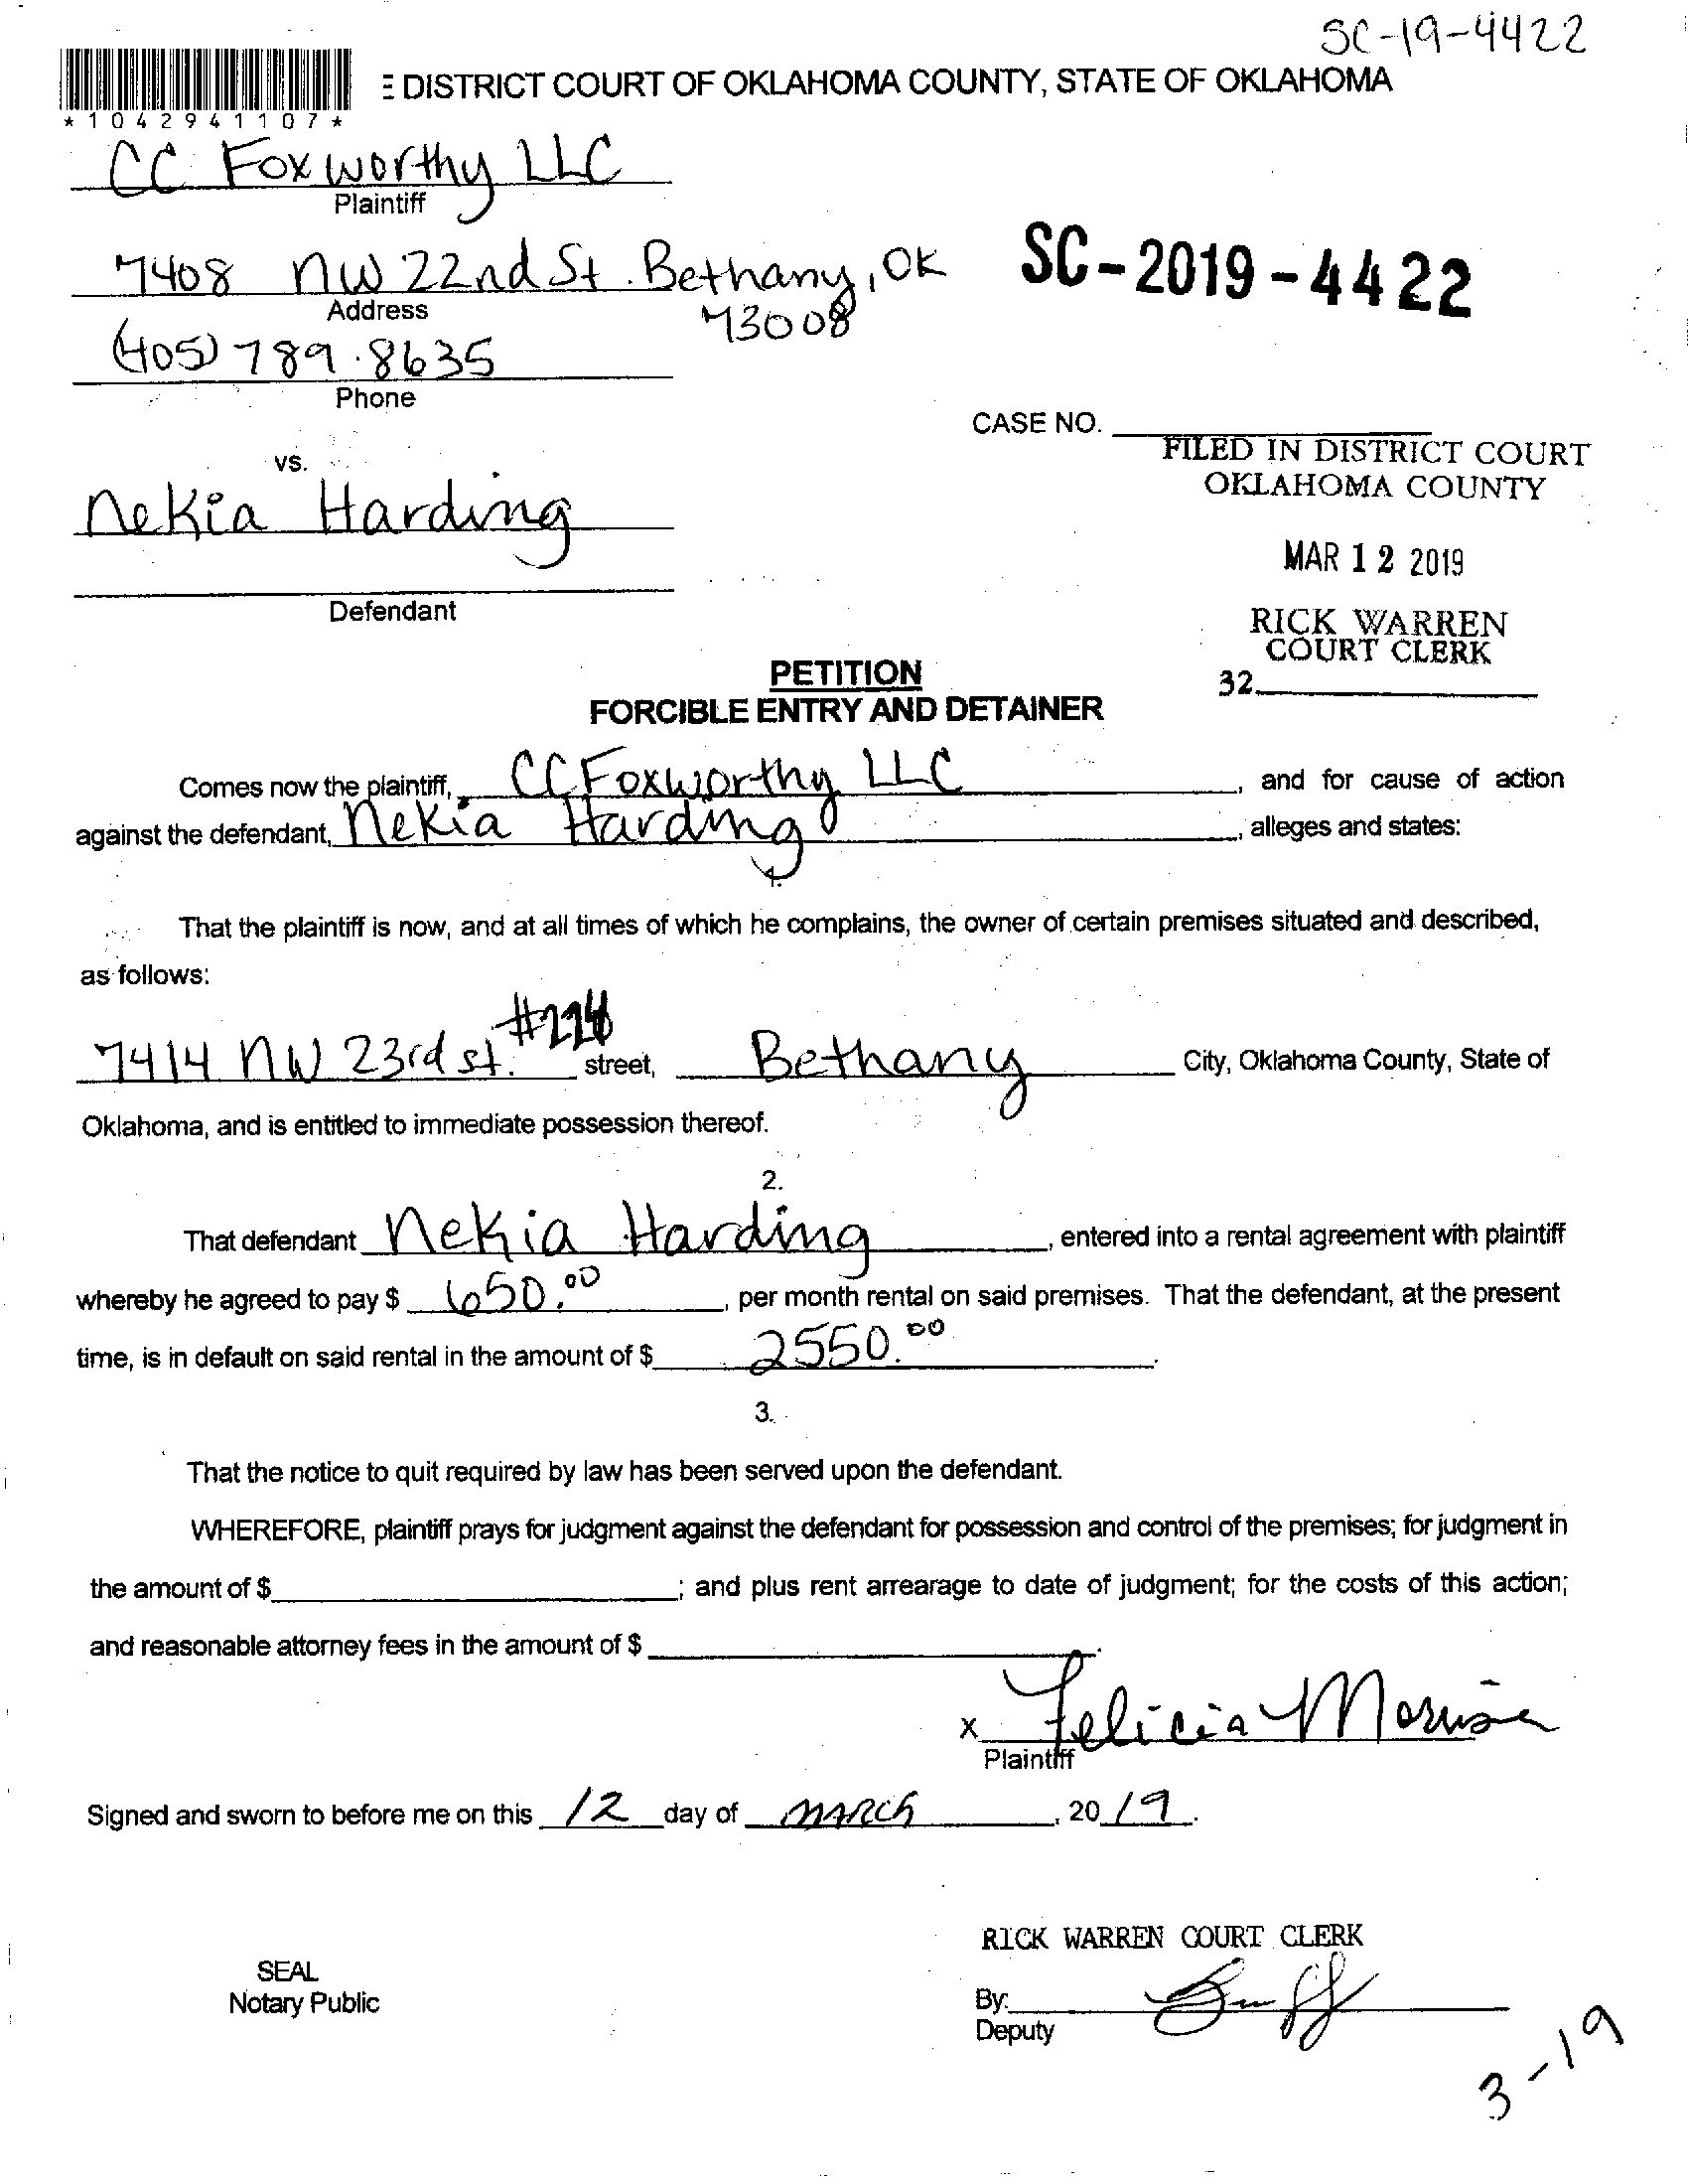 SC-19-4422
E DISTRICT COURT OF OKLAHOMA COUNTY, STATE OF OKLAHOMA
*1042941107*
CC Foxworthy LLC
Plaintiff
7408 NW 22nd St. Bethany, OK
Address
73008
SC-2019-4422
(405) 789.8635
Phone
CASE NO.
FILED IN DISTRICT COURT
OKLAHOMA COUNTY
vs.
Nekia Harding
MAR 12 2019
Defendant
RICK WARREN
COURT CLERK
32.
PETITION
FORCIBLE ENTRY AND DETAINER
Comes now the plaintiff, CC Foxworthy LLC, and for cause of action
against the defendant, Nekia Harding, alleges and states:
1.
That the plaintiff is now, and at all times of which he complains, the owner of certain premises situated and described,
as follows:
7414 NW 23rd st. street, Bethany City, Oklahoma County, State of
Oklahoma, and is entitled to immediate possession thereof.
2.
That defendant Nekia Harding, entered into a rental agreement with plaintiff
whereby he agreed to pay $ 650.00, per month rental on said premises. That the defendant, at the present
time, is in default on said rental in the amount of $ 2550.00.
3.
That the notice to quit required by law has been served upon the defendant.
WHEREFORE, plaintiff prays for judgment against the defendant for possession and control of the premises; for judgment in
the amount of $ ; and plus rent arrearage to date of judgment; for the costs of this action;
and reasonable attorney fees in the amount of $ .
x Felicia
Plaintiff
Signed and sworn to before me on this 12 day of March, 2019.
RICK WARREN COURT CLERK
SEAL
Notary Public
By:
Deputy
3-19